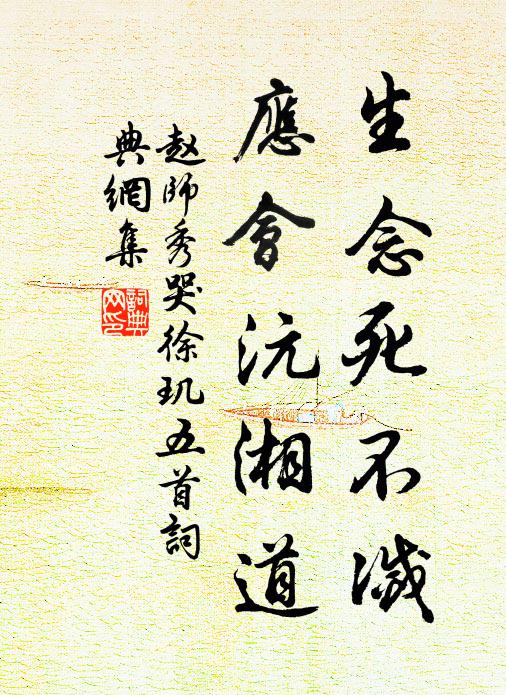 生念死不滅
應會沅湘道
赵師秀哭徐玑五首詞
典網集
詞典
网印